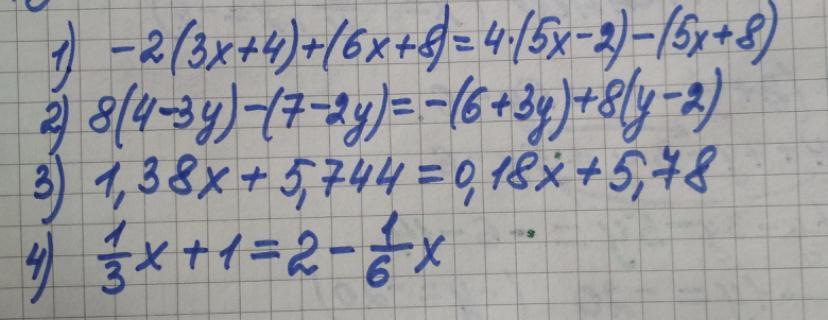 1) -2(3x+4)+(6x+8)=4·(5x-2)-(5x+8)
2) 8(4-3y)-(7-2y)=-(6+3y)+8(y-2)
3) 1,38x+5,744=0,18x+5,78
4) 1/3x+1=2-1/6x